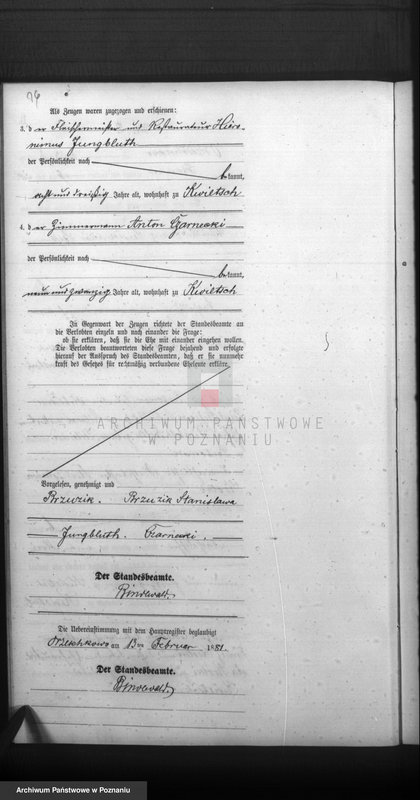 76
Als Zeugen waren zugezogen und erschienen:
3. der Fleischermeister und Restaurateur Hiero-
nimus Jungbluth
der Persönlichkeit nach
bekannt,
acht und dreißig Jahre alt, wohnhaft zu Kwiltsch
4. der Zimmermann Anton Czarnecki
der Persönlichkeit nach
bekannt,
neun und zwanzig Jahre alt, wohnhaft zu Kwiltsch
In Gegenwart der Zeugen richtete der Standesbeamte an
die Verlobten einzeln und nach einander die Frage:
ob sie erklären, daß sie die Ehe mit einander eingehen wollen.
Die Verlobten beantworteten diese Frage bejahend und erfolgte
hierauf der Ausspruch des Standesbeamten, daß er sie nunmehr
kraft des Gesetzes für rechtmäßig verbundene Eheleute erkläre.
ARCHIWUM PAŃSTWOWE
W POZNANIU
Vorgelesen, genehmigt und
Brzuzik. Brzuzik Stanislawa
Jungbluth. Czarnecki.
Der Standesbeamte.
Bindewald.
Die Uebereinstimmung mit dem Hauptregister beglaubigt
am 13ten Februar 1881.
Der Standesbeamte.
Bindewald
Archiwum Państwowe w Poznaniu